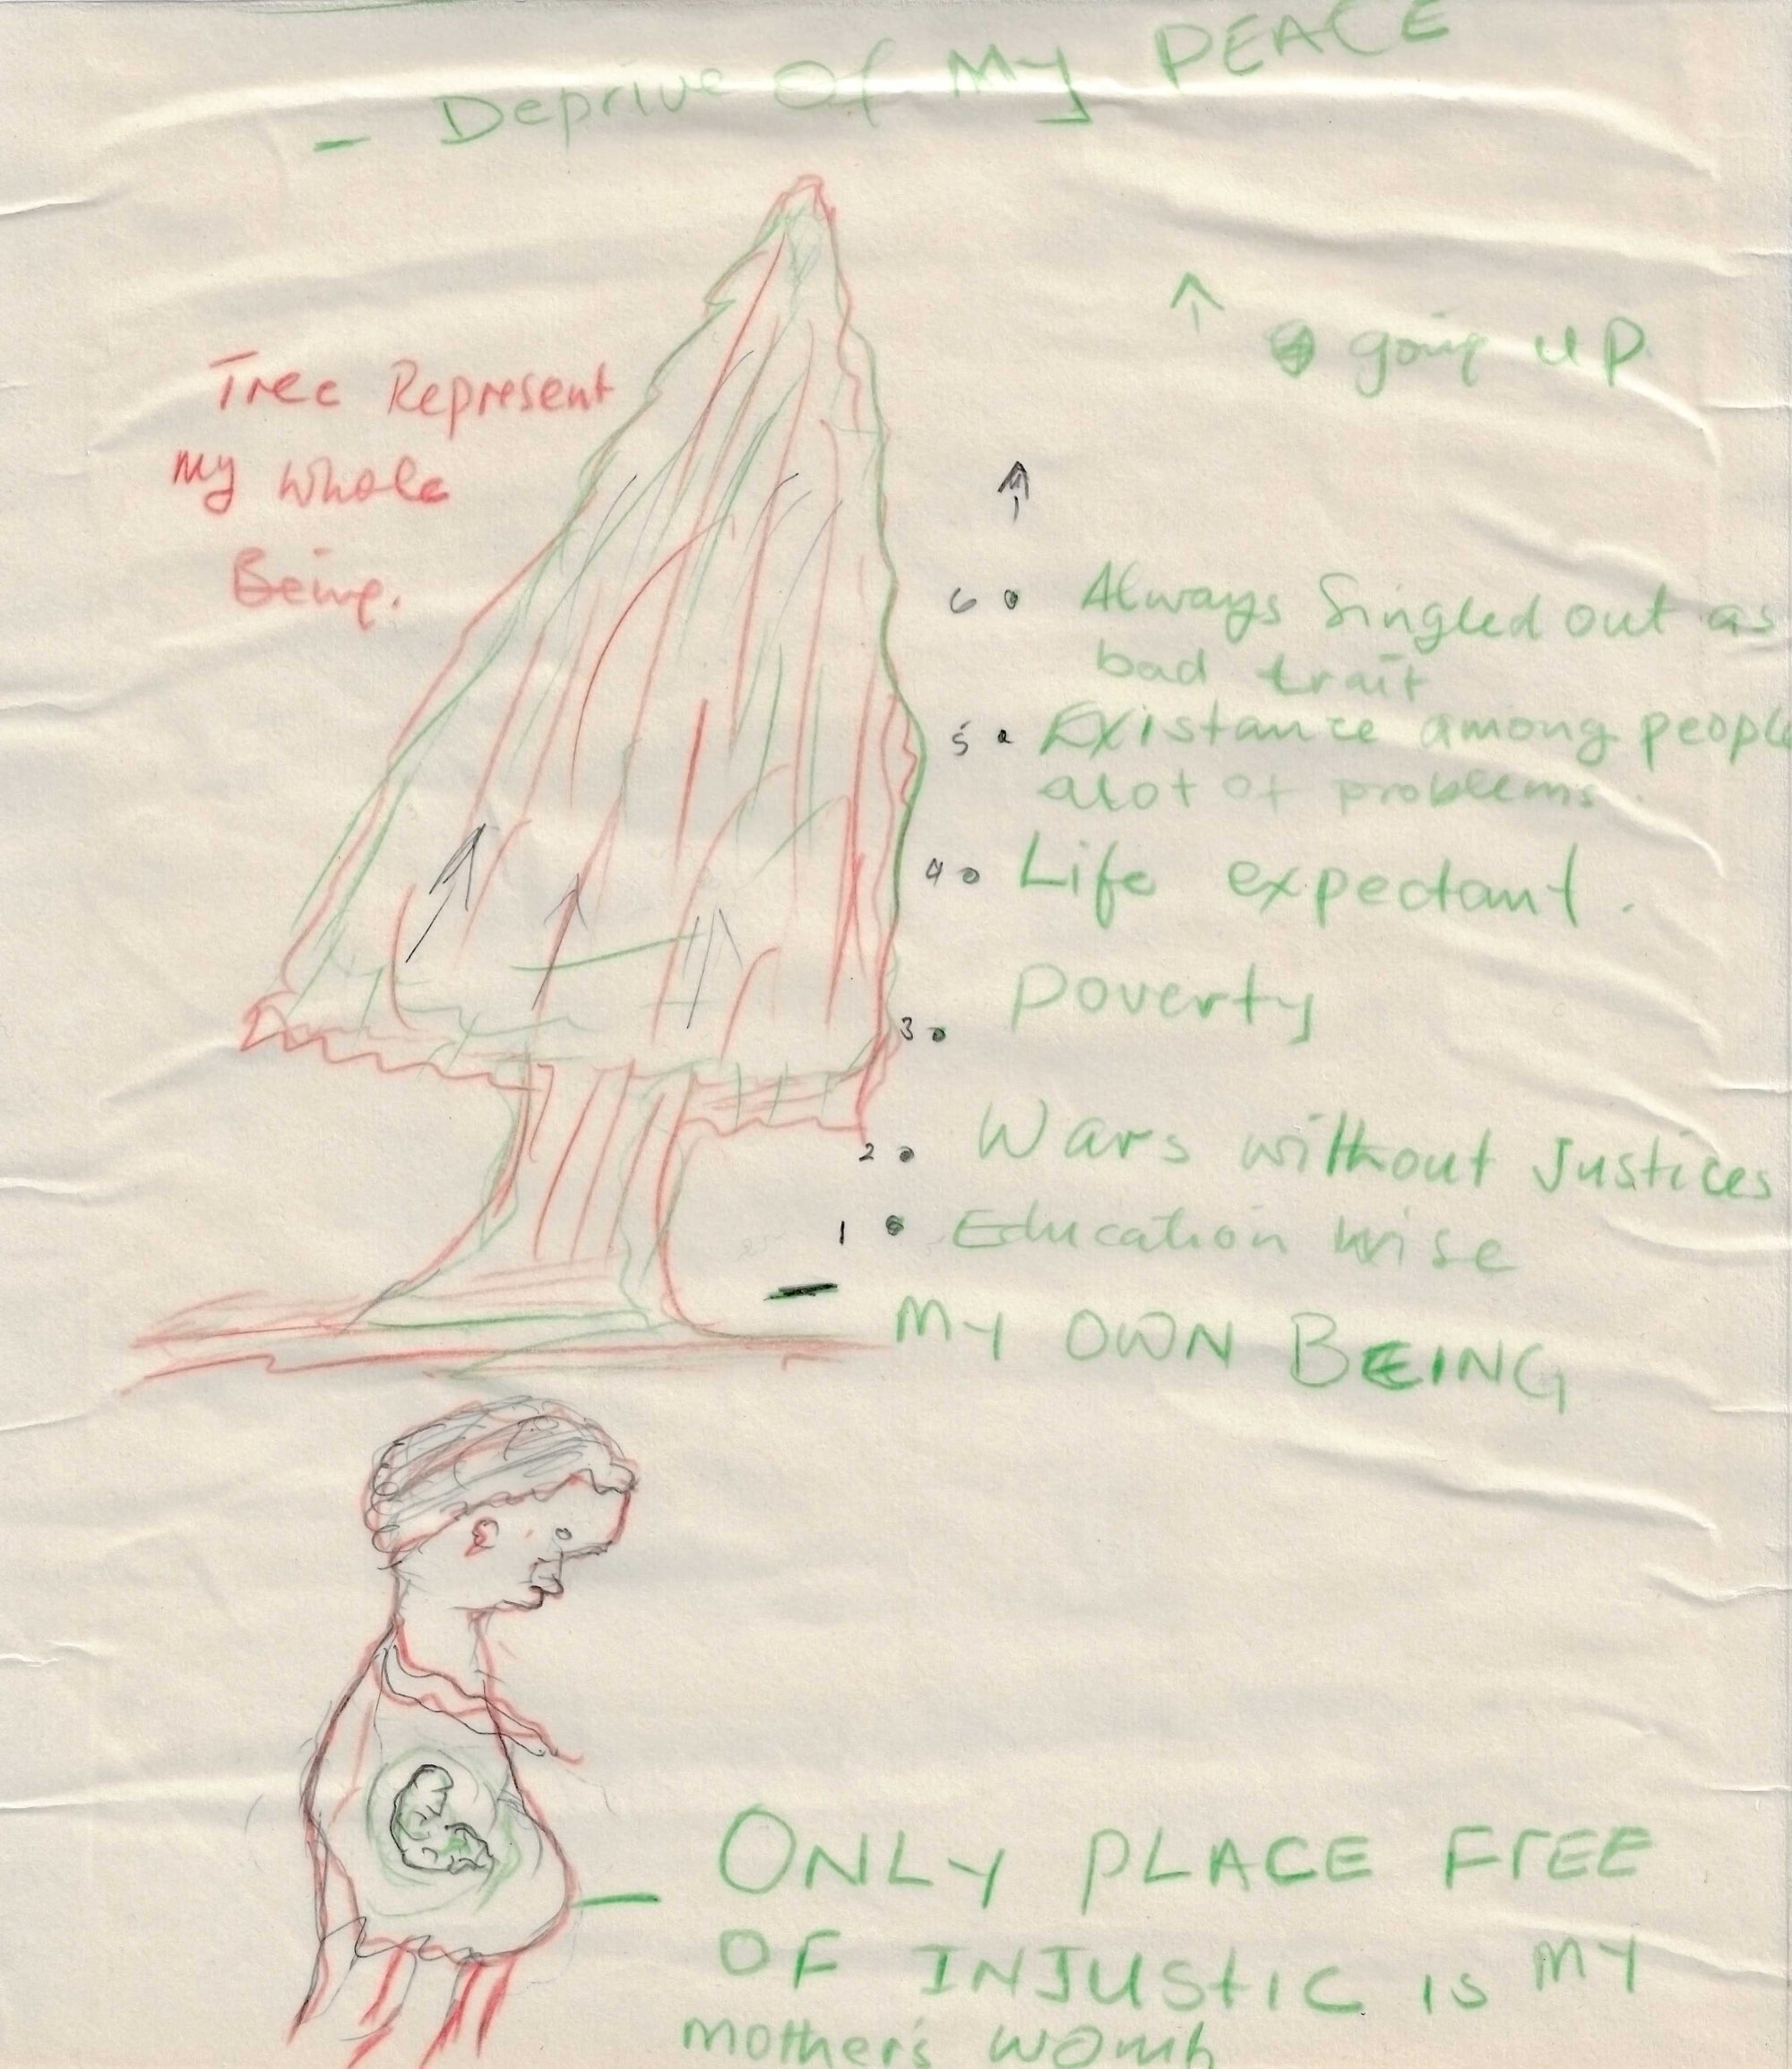 - Deprive Of My PEACE
↑ going UP
Tree Represent
My whole
Being.
6 Always Singled out as
bad trait
5 Existance among people
alot of problems.
4 Life expectant.
3 poverty
2 Wars without Justices
1 Education wise
- MY OWN BEING
- ONLY PLACE FREE
OF INJUSTIC IS MY
mother's womb